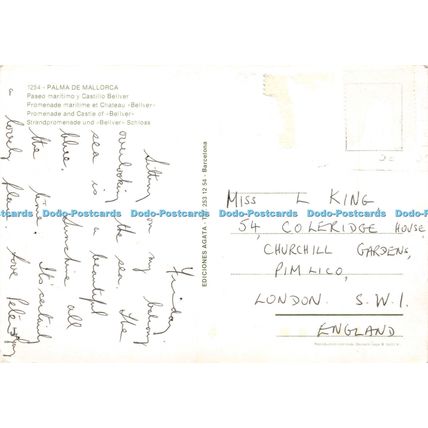 1254 - PALMA DE MALLORCA
Paseo marítimo y Castillo Bellver
Promenade maritime et Chateau «Bellver»
Promenade and Castle of «Bellver»
Strandpromenade und «Bellver» Schloss
Friday
Sitting on my balcony
overlooking the sea. The
sea is a beautiful
blue. Sunshine all
the time. It's certainly
a lovely place. Love
EDICIONES AGATA
253 12 54 - Barcelona
MISS L KING
54, COLERIDGE HOUSE,
CHURCHILL GARDENS,
PIMLICO,
LONDON. S.W.1.
ENGLAND
Dodo Postcards Dodo Postcards Dodo Postcards
Dodo Postcards Dodo Postcards Dodo Postcards
Dodo Postcards Dodo Postcards Dodo Postcards